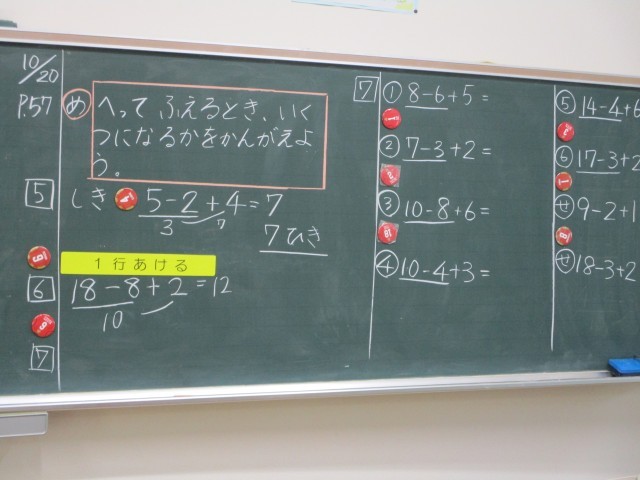 10/20
P.57
め へって ふえるとき、いく
つになるかをかんがえよ
う。
5 しき 5-2+4=7
3 7
7ひき
1行あける
6 18-8+2=12
10
7
7 ① 8-6+5=
② 7-3+2=
③ 10-8+6=
④ 10-4+3=
⑤ 14-4+6
⑥ 17-3+2
サ 9-2+1
サ 18-3+2